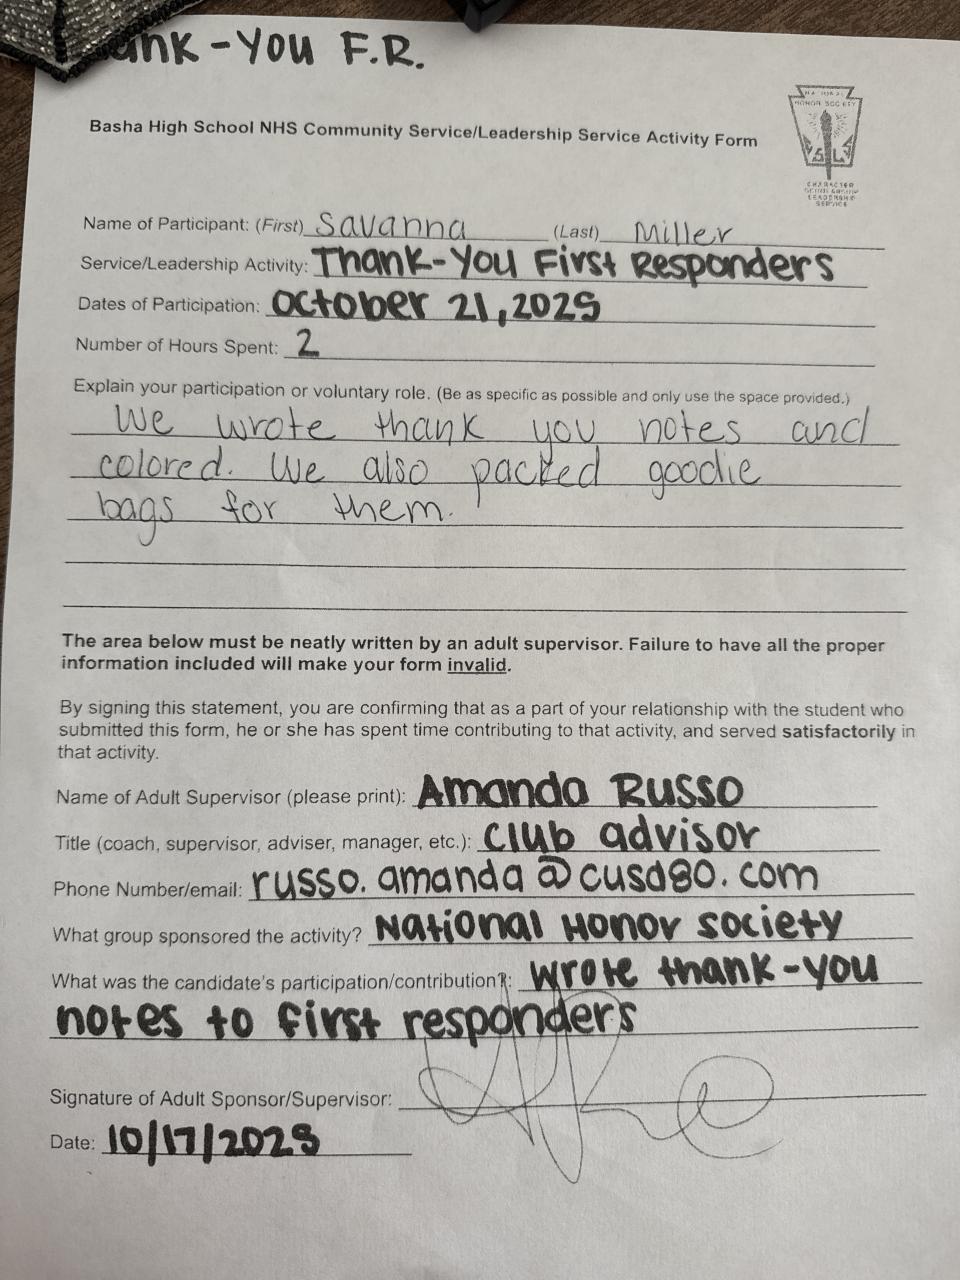 ank-You F.R.
NATIONAL
HONOR SOCIETY
CHARACTER
SCHOLARSHIP
LEADERSHIP
SERVICE
Basha High School NHS Community Service/Leadership Service Activity Form
Name of Participant: (First) Savanna (Last) Miller
Service/Leadership Activity: Thank-You First Responders
Dates of Participation: October 21, 2025
Number of Hours Spent: 2
Explain your participation or voluntary role. (Be as specific as possible and only use the space provided.)
We wrote thank you notes and
colored. We also packed goodie
bags for them.
The area below must be neatly written by an adult supervisor. Failure to have all the proper
information included will make your form invalid.
By signing this statement, you are confirming that as a part of your relationship with the student who
submitted this form, he or she has spent time contributing to that activity, and served satisfactorily in
that activity.
Name of Adult Supervisor (please print): Amanda Russo
Title (coach, supervisor, adviser, manager, etc.): Club advisor
Phone Number/email: russo.amanda@cusd80.com
What group sponsored the activity? National Honor Society
What was the candidate's participation/contribution?: Wrote thank-you
notes to first responders
Signature of Adult Sponsor/Supervisor:
Date: 10/17/2025